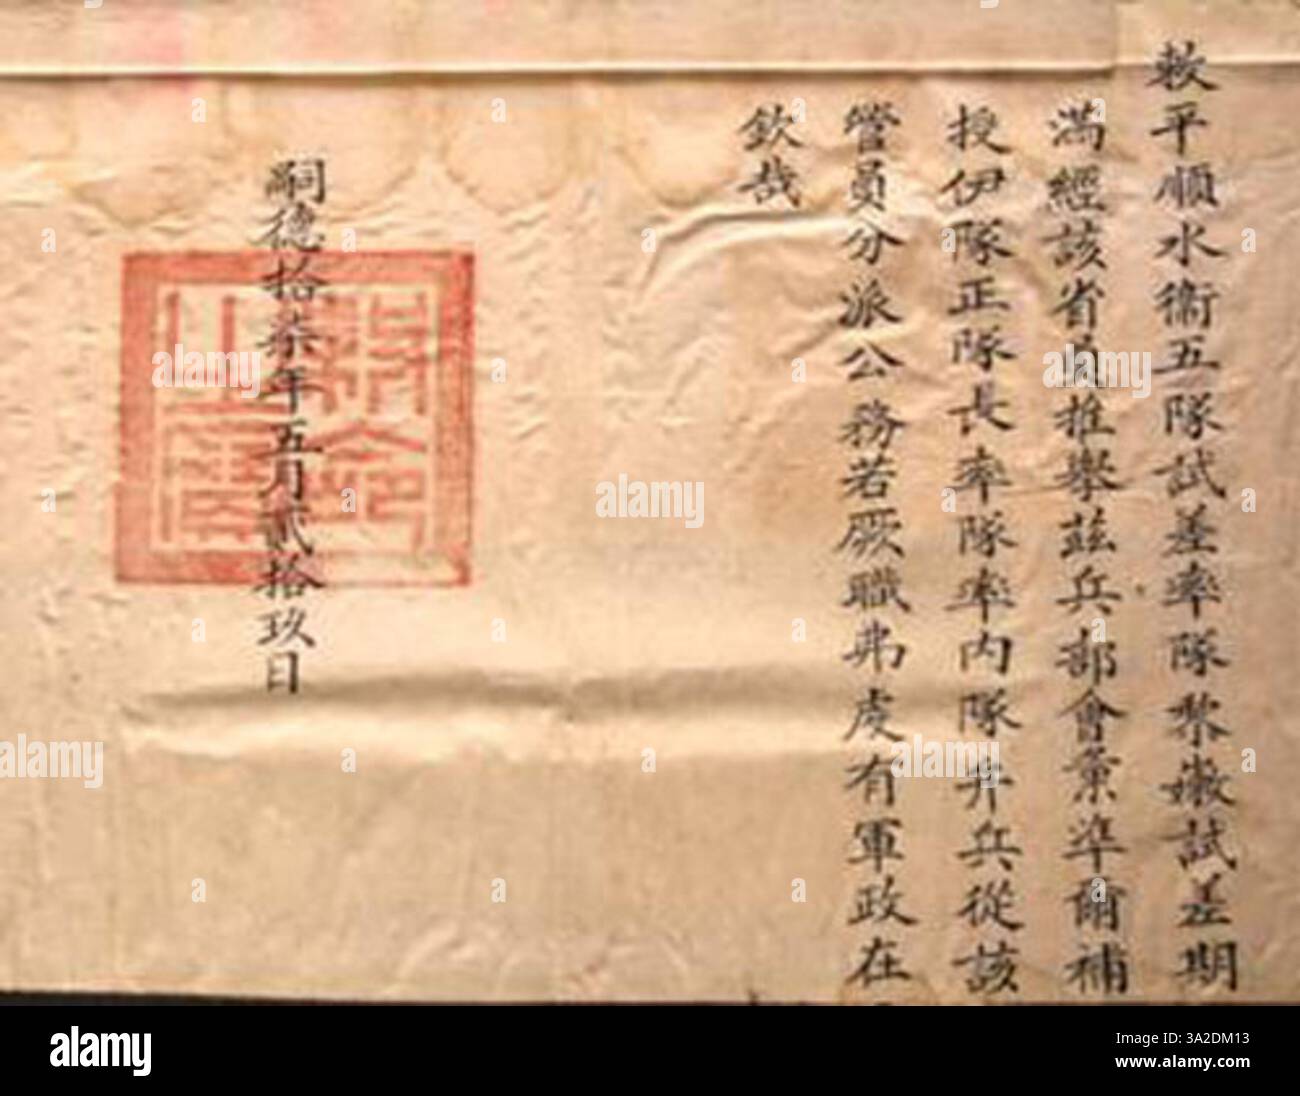 敕平順水衛五隊試差率隊黎嫩試差期
滿經該省員推舉茲兵部會稟準爾補
授伊隊正隊長率隊率內隊弁兵從該
管員分派公務若厥職弗虔有軍政在
欽哉
嗣德拾柒年五月貳拾玖日
敕命之寶
alamy
Image ID: 3A2DM13
www.alamy.com